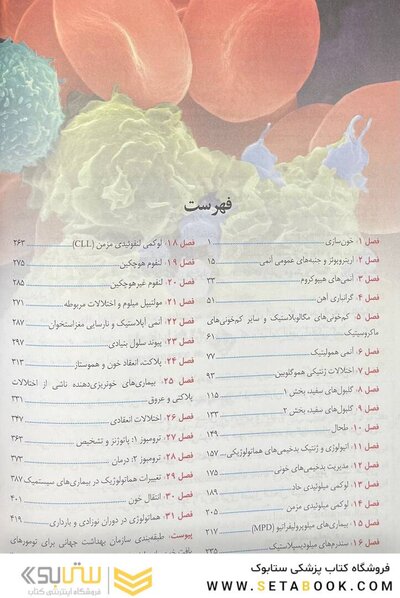 فهرست
فصل ۱. خون‌سازی ۱
فصل ۲. اریتروپوئز و جنبه‌های عمومی آنمی ۱۵
فصل ۳. آنمی‌های هیپوکروم ۳۳
فصل ۴. گرانباری آهن ۵۱
فصل ۵. کم‌خونی‌های مگالوبلاستیک و سایر کم‌خونی‌های
ماکروسیتیک ۶۱
فصل ۶. آنمی همولیتیک ۷۷
فصل ۷. اختلالات ژنتیکی هموگلوبین ۹۳
فصل ۸. گلبول‌های سفید، بخش ۱ ۱۱۵
فصل ۹. گلبول‌های سفید، بخش ۲ ۱۳۳
فصل ۱۰. طحال ۱۴۹
فصل ۱۱. اتیولوژی و ژنتیک بدخیمی‌های هماتولوژیکی ۱۵۷
فصل ۱۲. مدیریت بدخیمی‌های خونی ۱۷۵
فصل ۱۳. لوکمی میلوئیدی حاد ۱۸۹
فصل ۱۴. لوکمی میلوئیدی مزمن ۲۰۵
فصل ۱۵. بیماری‌های میلوپرولیفراتیو (MPD) ۲۱۷
فصل ۱۶. سندرم‌های میلودیسپلاستیک ۲۳۵
فصل ۱۸. لوکمی لنفوئیدی مزمن (CLL) ۲۶۳
فصل ۱۹. لنفوم هوچکین ۲۷۵
فصل ۲۰. لنفوم غیرهوچکین ۲۸۵
فصل ۲۱. مولتیپل میلوم و اختلالات مربوطه ۲۷۱
فصل ۲۲. آنمی آپلاستیک و نارسایی مغزاستخوان ۲۸۷
فصل ۲۳. پیوند سلول بنیادی ۲۹۷
فصل ۲۴. پلاکت، انعقاد خون و هموستاز ۳۱۳
فصل ۲۵. بیماری‌های خونریزی‌دهنده ناشی از اختلالات
پلاکتی و عروق ۳۳۱
فصل ۲۶. اختلالات انعقادی ۳۴۷
فصل ۲۷. ترومبوز ۱: پاتوژنز و تشخیص ۳۶۳
فصل ۲۸. ترومبوز ۲: درمان ۳۷۳
فصل ۲۹. تغییرات هماتولوژیک در بیماری‌های سیستمیک ۳۸۷
فصل ۳۰. انتقال خون ۴۰۱
فصل ۳۱. هماتولوژی در دوران نوزادی و بارداری ۴۱۹
پیوست: طبقه‌بندی سازمان بهداشت جهانی برای تومورهای
فروشگاه کتاب پزشکی ستابوک
WWW.SETABOOK.COM
ستابوک
فروشگاه اینترنتی کتاب